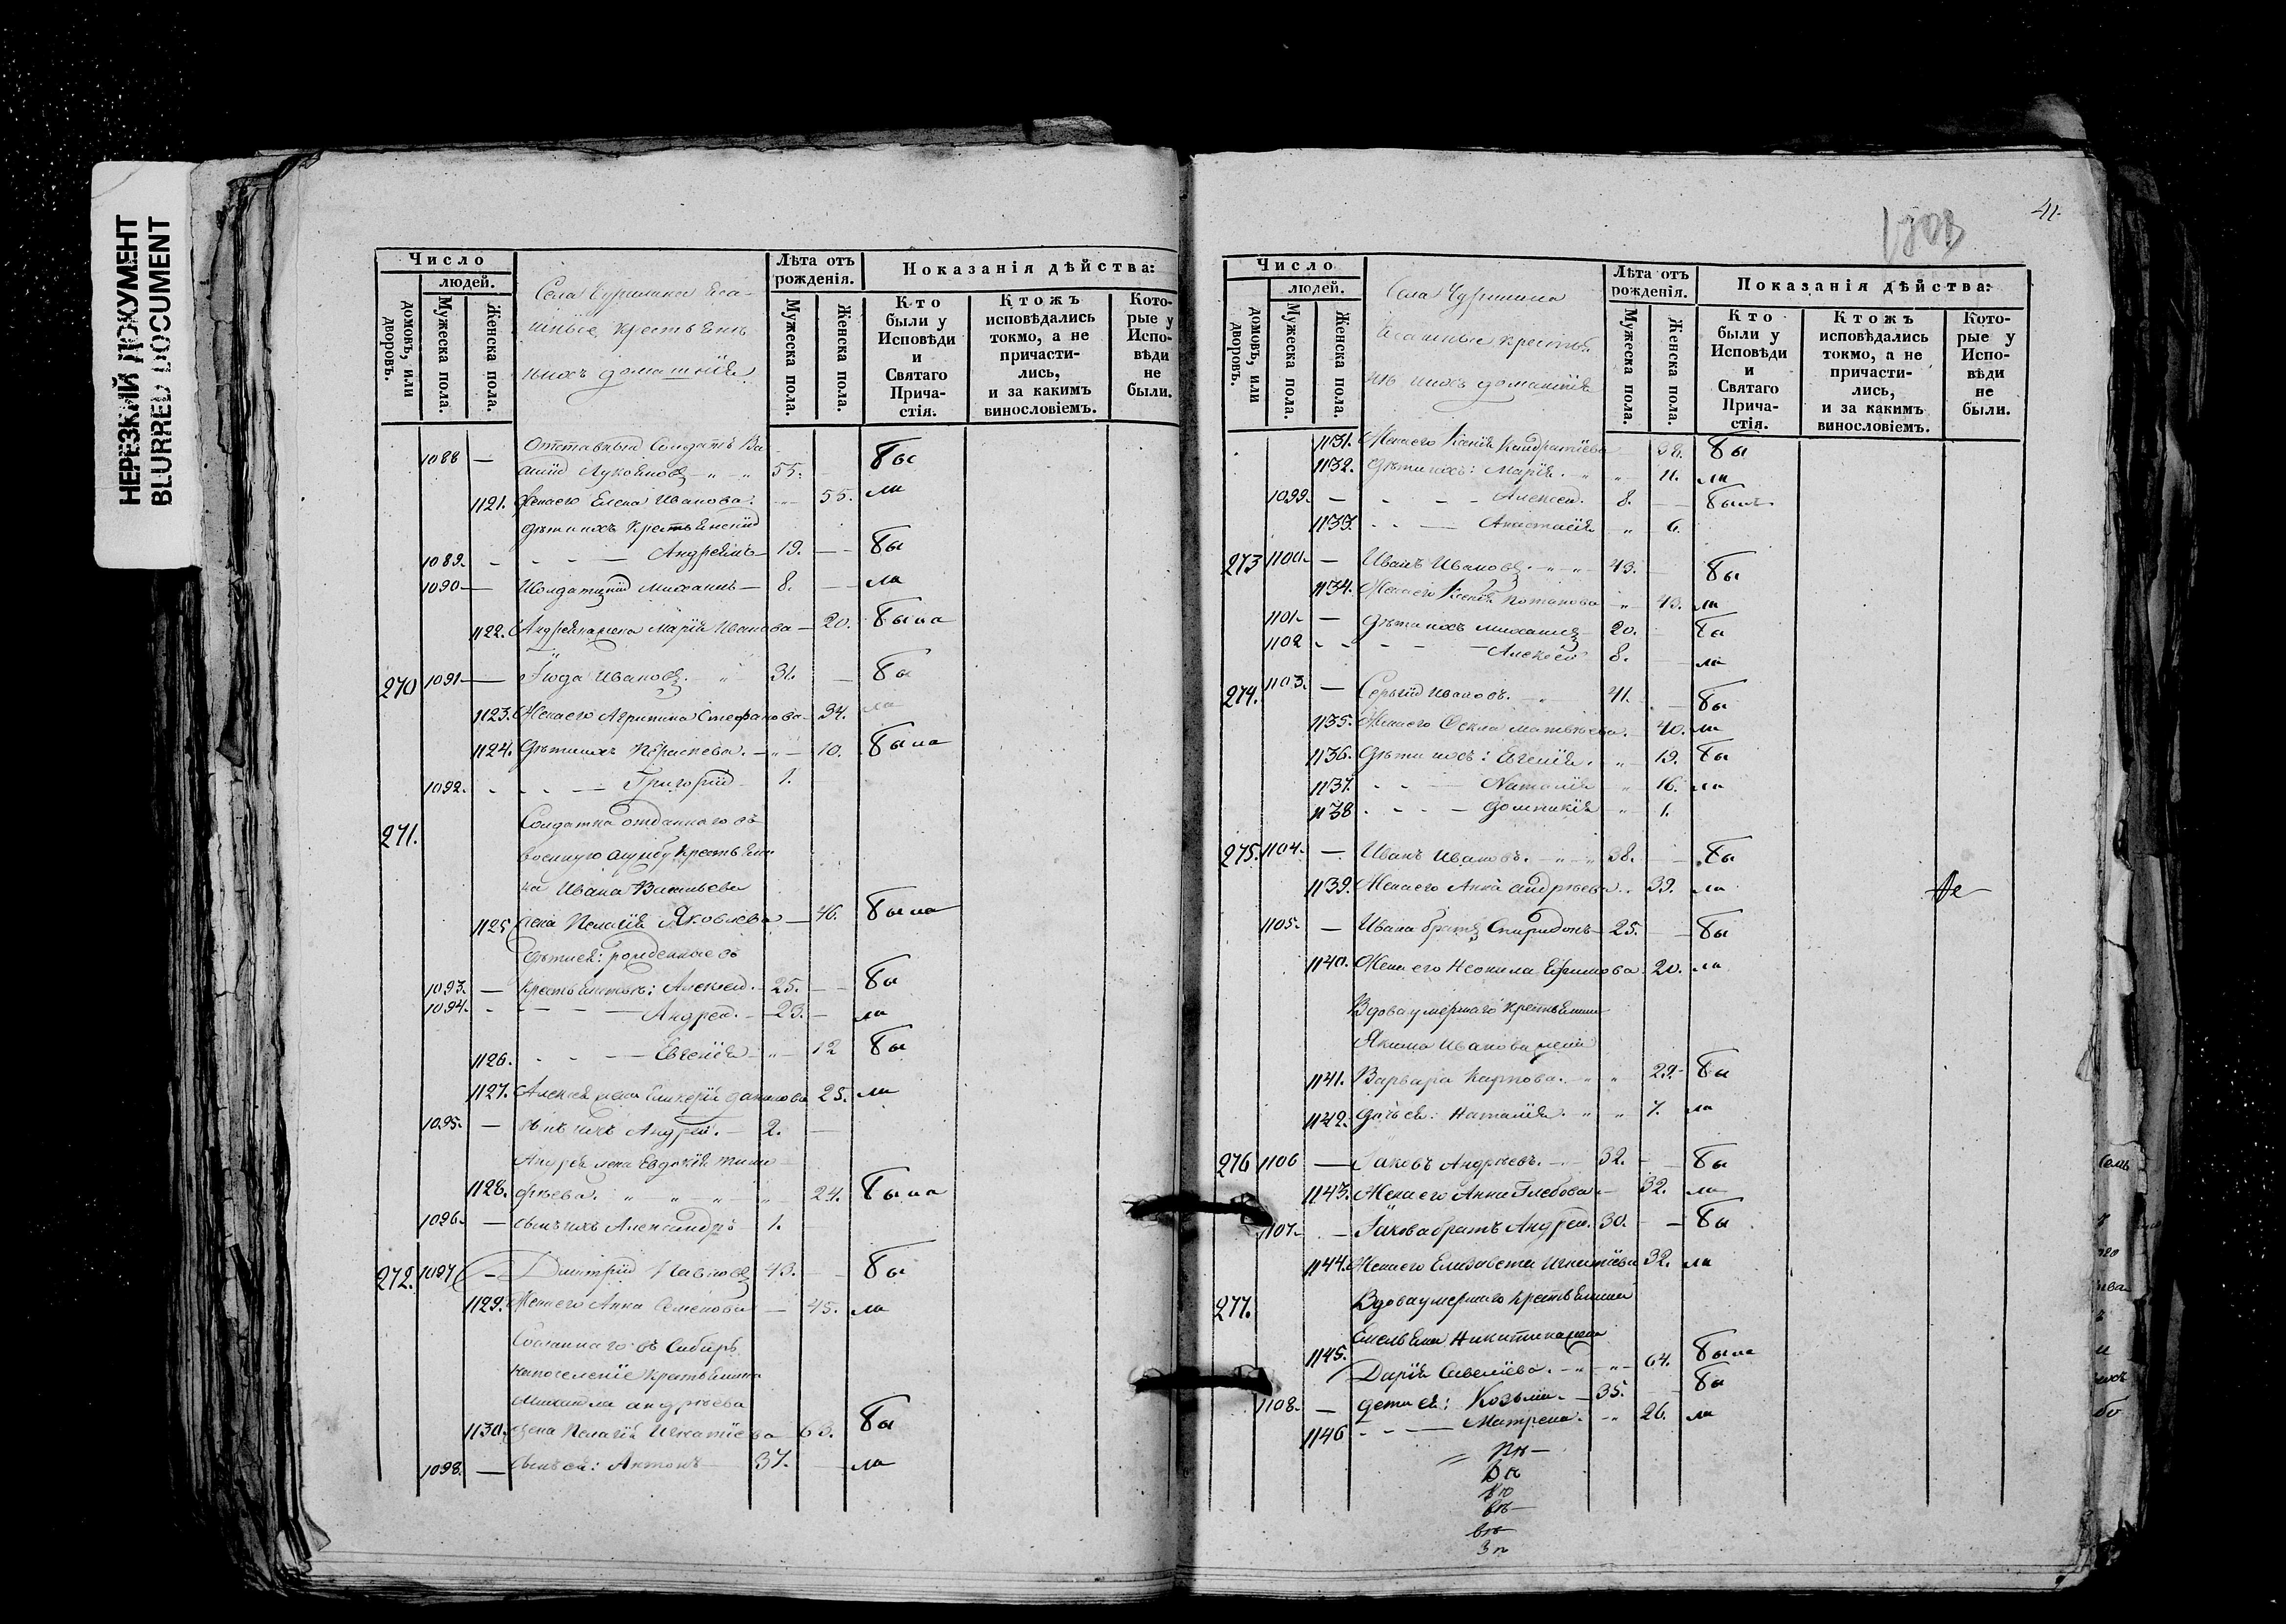 НЕРЕЗКИЙ ДОКУМЕНТ
BLURRED DOCUMENT
Число
людей.
домовъ, или дворовъ.
Мужеска пола.
Женска пола.
Села
крестьяне
ихъ домашнія
Лѣта отъ рожденія.
Мужеска пола.
Женска пола.
Показанія дѣйства:
Кто были у Исповѣди и Святаго Прича-стія.
Ктожъ исповѣдались токмо, а не причасти-лись, и за какимъ винословіемъ.
Кото-рые у Испо-вѣди не были.
1088 — Отставный Солдатъ Ва
55. бы
1121. Жена его Елена Иванова 55. ла
дѣти ихъ крестьянскій
1089. Андрей 19. бы
1090 Михаилъ 8. ла
1122. Андрея жена Марія Иванова 20. была
270 1091 Іюда Ивановъ 31. бы
1123. Жена его Агрипина Стефанова 34. ла
1124. дѣти ихъ Параскева 10. была
1092. Григорій 1.
271. Солдатка отданнаго въ
военную службу крестьяни
на Ивана Васильева
1125 жена Пелагія Яковлева 46. была
дѣти ея: рожденные въ
1093. Алексей 25. бы
1094. Андрей 23. ла
1126. Евгенія 12 бы
1127. Алексея жена Гликерія 25. ла
1095. сынъ ихъ Андрей 2.
Андрея жена Евдокія Тимо
1128. фѣева 24. была
1096. сынъ ихъ Александръ 1.
272. 1097 Димитрій 43. бы
1129. Жена его Анна Семенова 45. ла
Сосланнаго въ Сибирь
на поселеніе крестьянина
Михаила Андреева
1130. жена Пелагія Игнатіева 63. бы
1098. сынъ ея: Антонъ 37. ла
41.
Число
людей.
домовъ, или дворовъ.
Мужеска пола.
Женска пола.
Села
крестья
не ихъ домашнія
Лѣта отъ рожденія.
Мужеска пола.
Женска пола.
Показанія дѣйства:
Кто были у Исповѣди и Святаго Прича-стія.
Ктожъ исповѣдались токмо, а не причасти-лись, и за какимъ винословіемъ.
Кото-рые у Испо-вѣди не были.
1131. Жена его Ксенія Кондратіева 38. бы
1132. дѣти ихъ: Марія 11. ла
1099. Алексей 8. былъ
1133. Анастасія 6.
273 1100. Иванъ Ивановъ 43. бы
1134. Жена его Ксенія Потапова 43. ла
1101. дѣти ихъ Михаилъ 20. бы
1102 Алексей 8. ла
274. 1103. Сергій Ивановъ 41. бы
1135. Жена его Фекла Матвѣева 40. ла
1136. дѣти ихъ: Евгенія 19. бы
1137. Наталія 16. ла
1138 Домникія 1.
275. 1104. Иванъ Ивановъ 38. бы
1139. Жена его Анна Андреева 39. ла
1105. Ивана братъ Спиридонъ 25. бы
1140. Жена его Неонила Ефимова 20. ла
Вдова умершаго крестьянина
Якима Иванова жена
1141. Варвара Карпова 29. бы
1142. дочь ея: Наталія 7. ла
276 1106 Іаковъ Андреевъ 32. бы
1143. Жена его Анна Глебова 32. ла
1107. Іакова братъ Андрей 30. бы
1144. Жена его Елизавета Игнатіева 32. ла
277. Вдова умершаго крестьянина
Емельяна Никитина жена
1145. Дарія Савеліева 64. была
1108. дети ея: Козьма 35. бы
1146 Матрена 26. ла